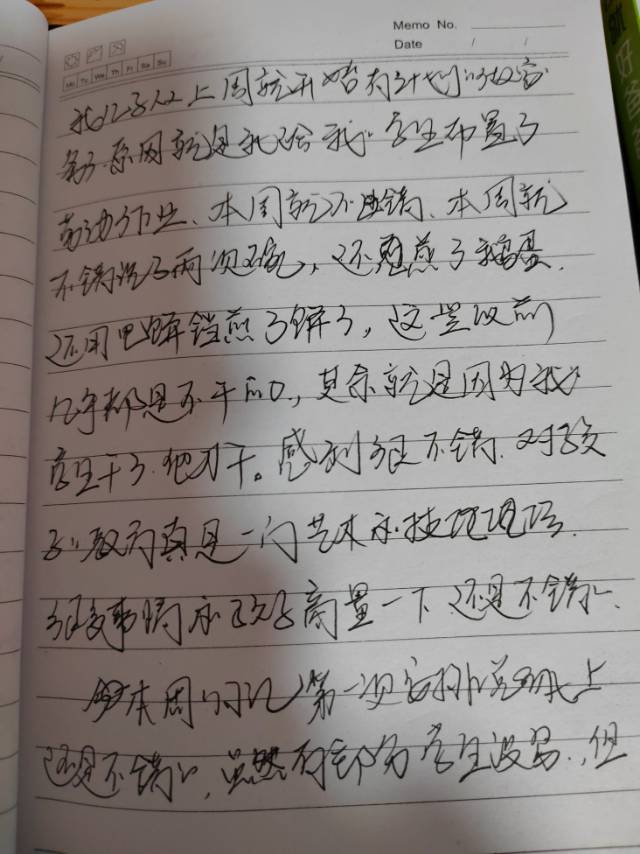 Memo No.
Date / /
Mo Tu We Th Fr Sa Su
我儿子从上周就开始有计划的做家
务了原因就是我给我的学生布置了
劳动作业、本周就不错、本周就
不错洗了两次碗，还蒸了鸡蛋.
还用电饼铛煎了饼了，这些以前
几乎都是不干的，其余就是因为我
学生干了他才干。感到很不错.对孩
子的教育真是一门艺术和技巧
很多事情和孩子商量一下还是不错的.
本周的日记第一次安排
还是不错的，虽然有部分学生没写，但